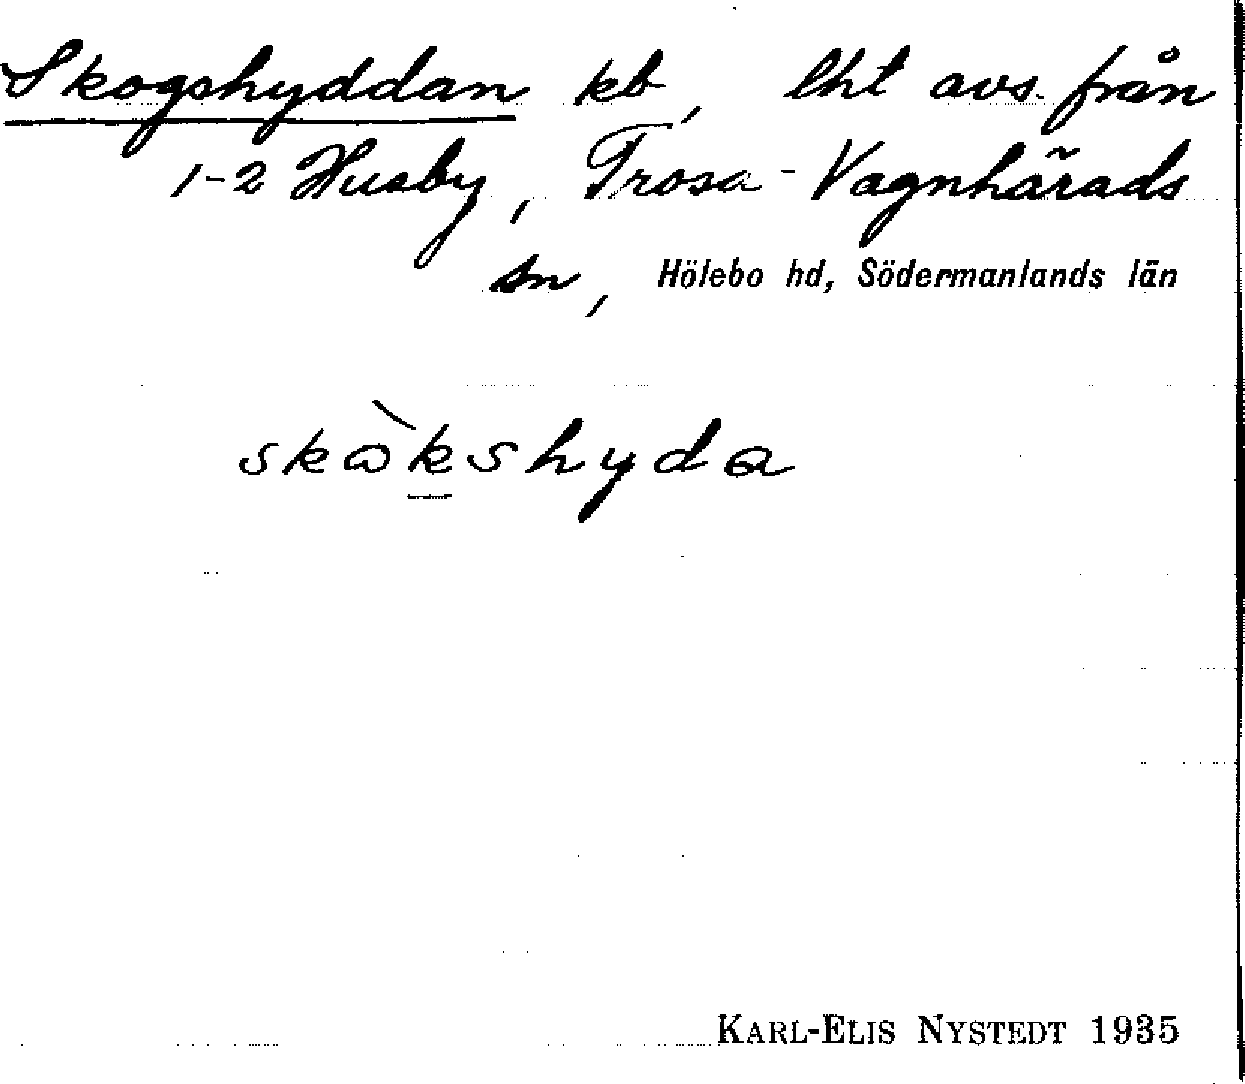 Skogshyddan kb, lht avs. från
1-2 Husby, Trosa-Vagnhärads
sn, Hölebo hd, Södermanlands län
skὼkshyda
KARL-ELIS NYSTEDT 1935